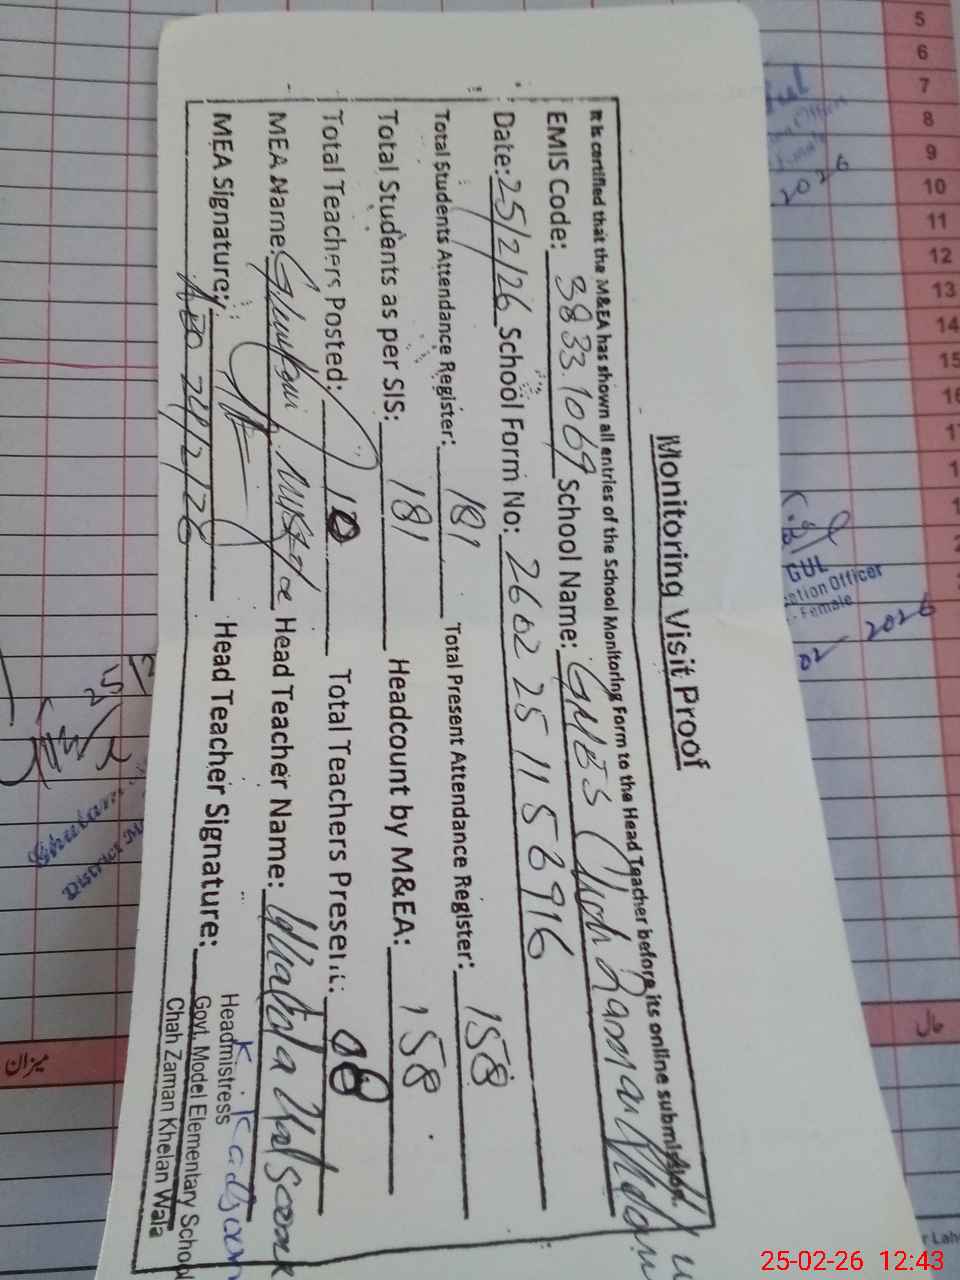 Monitoring Visit Proof
It is certified that the M&EA has shown all entries of the School Monitoring Form to the Head Teacher before its online submission.
EMIS Code: 38331069 School Name: GMES Chah Zaman
Date: 25/2/26 School Form No: 2602251156916
Total Students Attendance Register: 181 Total Present Attendance Register: 158
Total Students as per SIS: 181 Headcount by M&EA: 158
Total Teachers Posted: 10 Total Teachers Present: 08
MEA Name: Head Teacher Name:
MEA Signature: Head Teacher Signature:
24/2/26
Headmistress
Govt. Model Elementary School
Chah Zaman Khelan Wala
5
6
7
8
9
10
11
12
13
14
15
2026
GUL
ation Officer
Female
02 2026
حال
میزان
District M
25-02-26 12:43